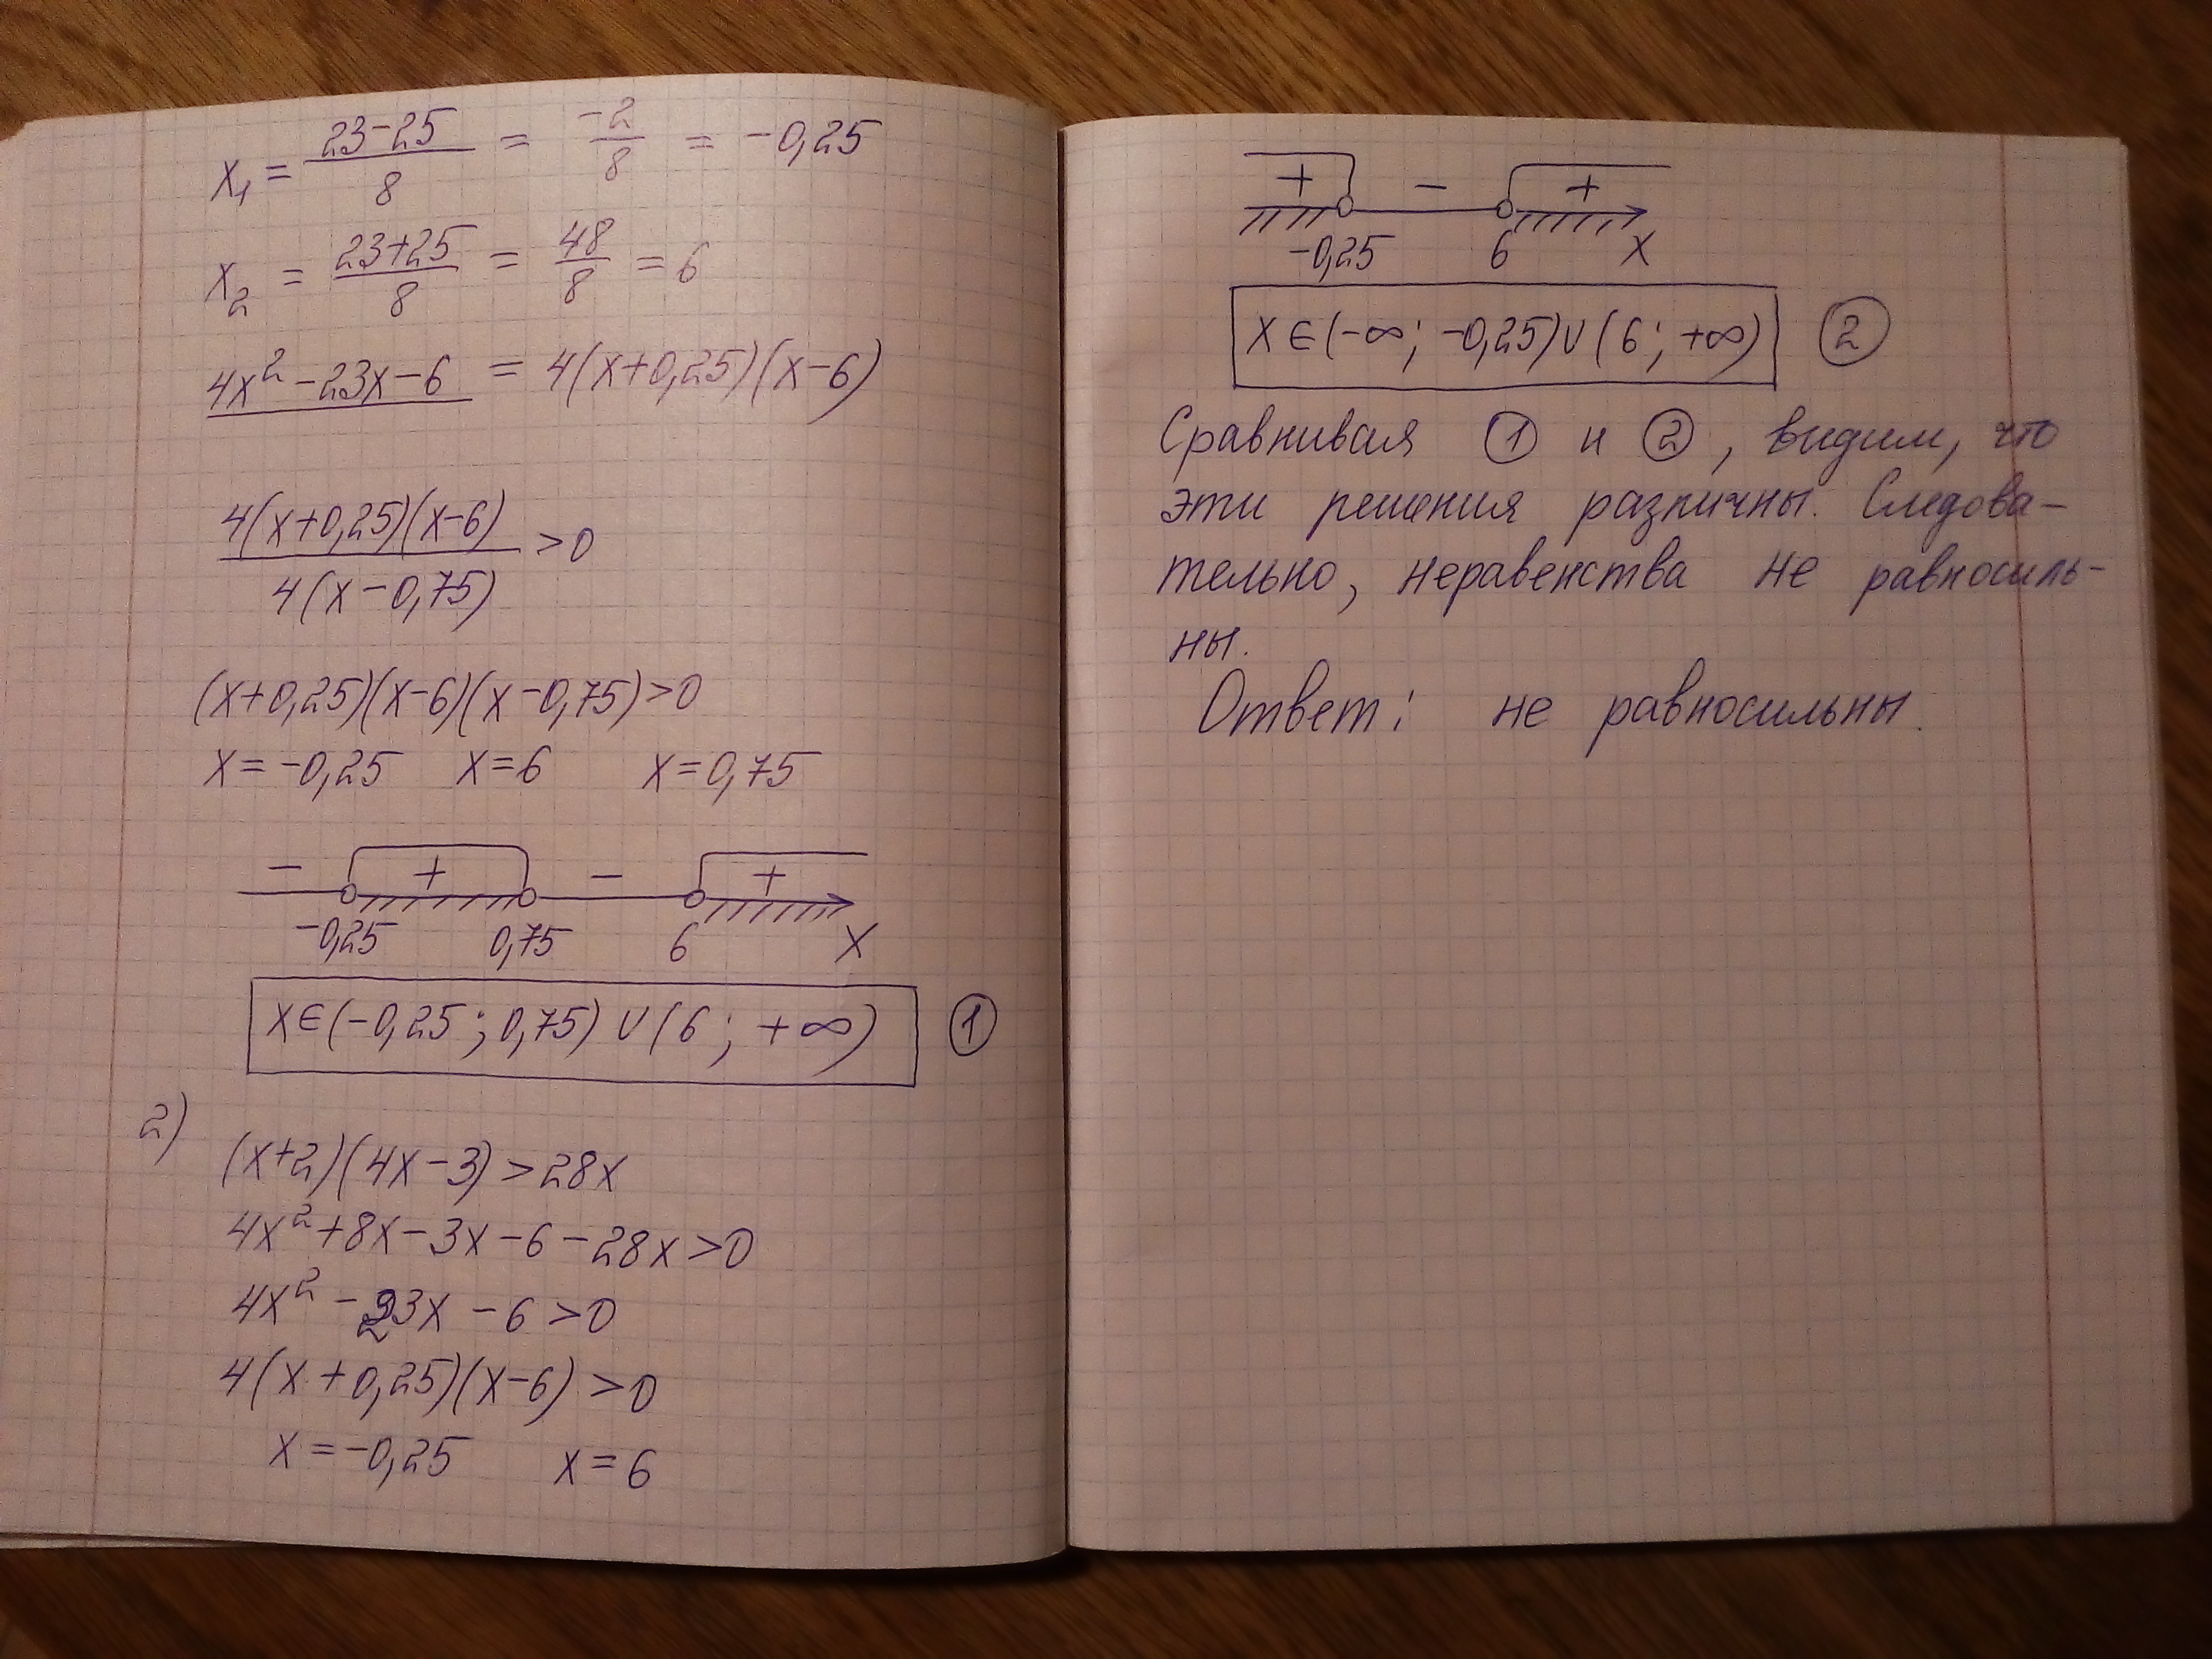 x₁ = (23-25)/8 = -2/8 = -0,25
x₂ = (23+25)/8 = 48/8 = 6
4x² - 23x - 6 = 4(x+0,25)(x-6)
4(x+0,25)(x-6)/4(x-0,75) > 0
(x+0,25)(x-6)(x-0,75)>0
x = -0,25 x=6 x=0,75
- + - +
-0,25 0,75 6 x
x∈(-0,25; 0,75) ∪ (6; +∞) ①
2)
(x+2)(4x-3) > 28x
4x² + 8x - 3x - 6 - 28x > 0
4x² - 23x - 6 > 0
4(x+0,25)(x-6) > 0
x = -0,25 x = 6
+ - +
-0,25 6 x
x∈(-∞; -0,25) ∪ (6; +∞) ②
Сравнивая ① и ②, видим, что
эти решения различны. Следова-
тельно, неравенства не равносиль-
ны.
Ответ: не равносильны.